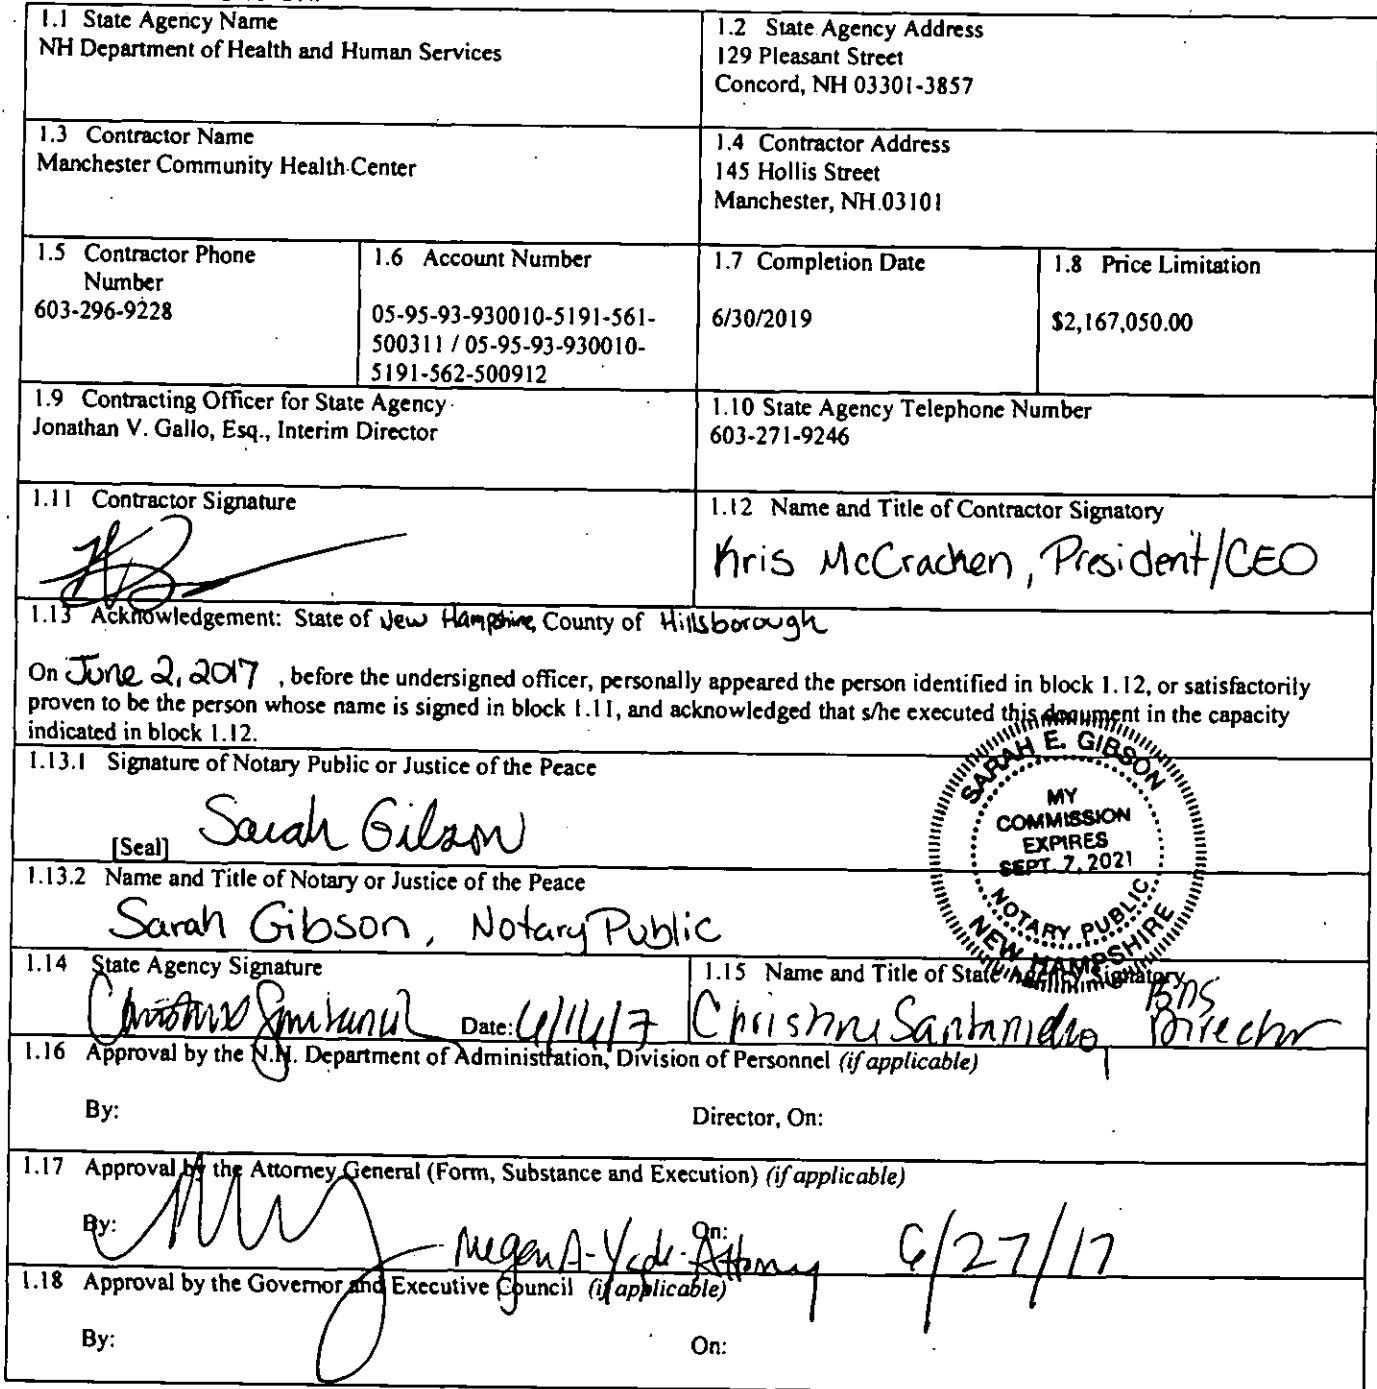 1.1 State Agency Name
NH Department of Health and Human Services
1.2 State Agency Address
129 Pleasant Street
Concord, NH 03301-3857
1.3 Contractor Name
Manchester Community Health Center
1.4 Contractor Address
145 Hollis Street
Manchester, NH 03101
1.5 Contractor Phone
Number
603-296-9228
1.6 Account Number
05-95-93-930010-5191-561-
500311 / 05-95-93-930010-
5191-562-500912
1.7 Completion Date
6/30/2019
1.8 Price Limitation
$2,167,050.00
1.9 Contracting Officer for State Agency
Jonathan V. Gallo, Esq., Interim Director
1.10 State Agency Telephone Number
603-271-9246
1.11 Contractor Signature
1.12 Name and Title of Contractor Signatory
Kris McCracken, President/CEO
1.13 Acknowledgement: State of New Hampshire, County of Hillsborough
On June 2, 2017 , before the undersigned officer, personally appeared the person identified in block 1.12, or satisfactorily
proven to be the person whose name is signed in block 1.11, and acknowledged that s/he executed this document in the capacity
indicated in block 1.12.
1.13.1 Signature of Notary Public or Justice of the Peace
[Seal] Sarah Gibson
SARAH E. GIBSON
MY
COMMISSION
EXPIRES
SEPT. 7, 2021
NOTARY PUBLIC
NEW HAMPSHIRE
1.13.2 Name and Title of Notary or Justice of the Peace
Sarah Gibson, Notary Public
1.14 State Agency Signature
Date:
1.15 Name and Title of State Agency Signatory
Christine Santaniello, Director
1.16 Approval by the N.H. Department of Administration, Division of Personnel (if applicable)
By: Director, On:
1.17 Approval by the Attorney General (Form, Substance and Execution) (if applicable)
By: Megan A. - Attorney On: 6/27/17
1.18 Approval by the Governor and Executive Council (if applicable)
By: On: